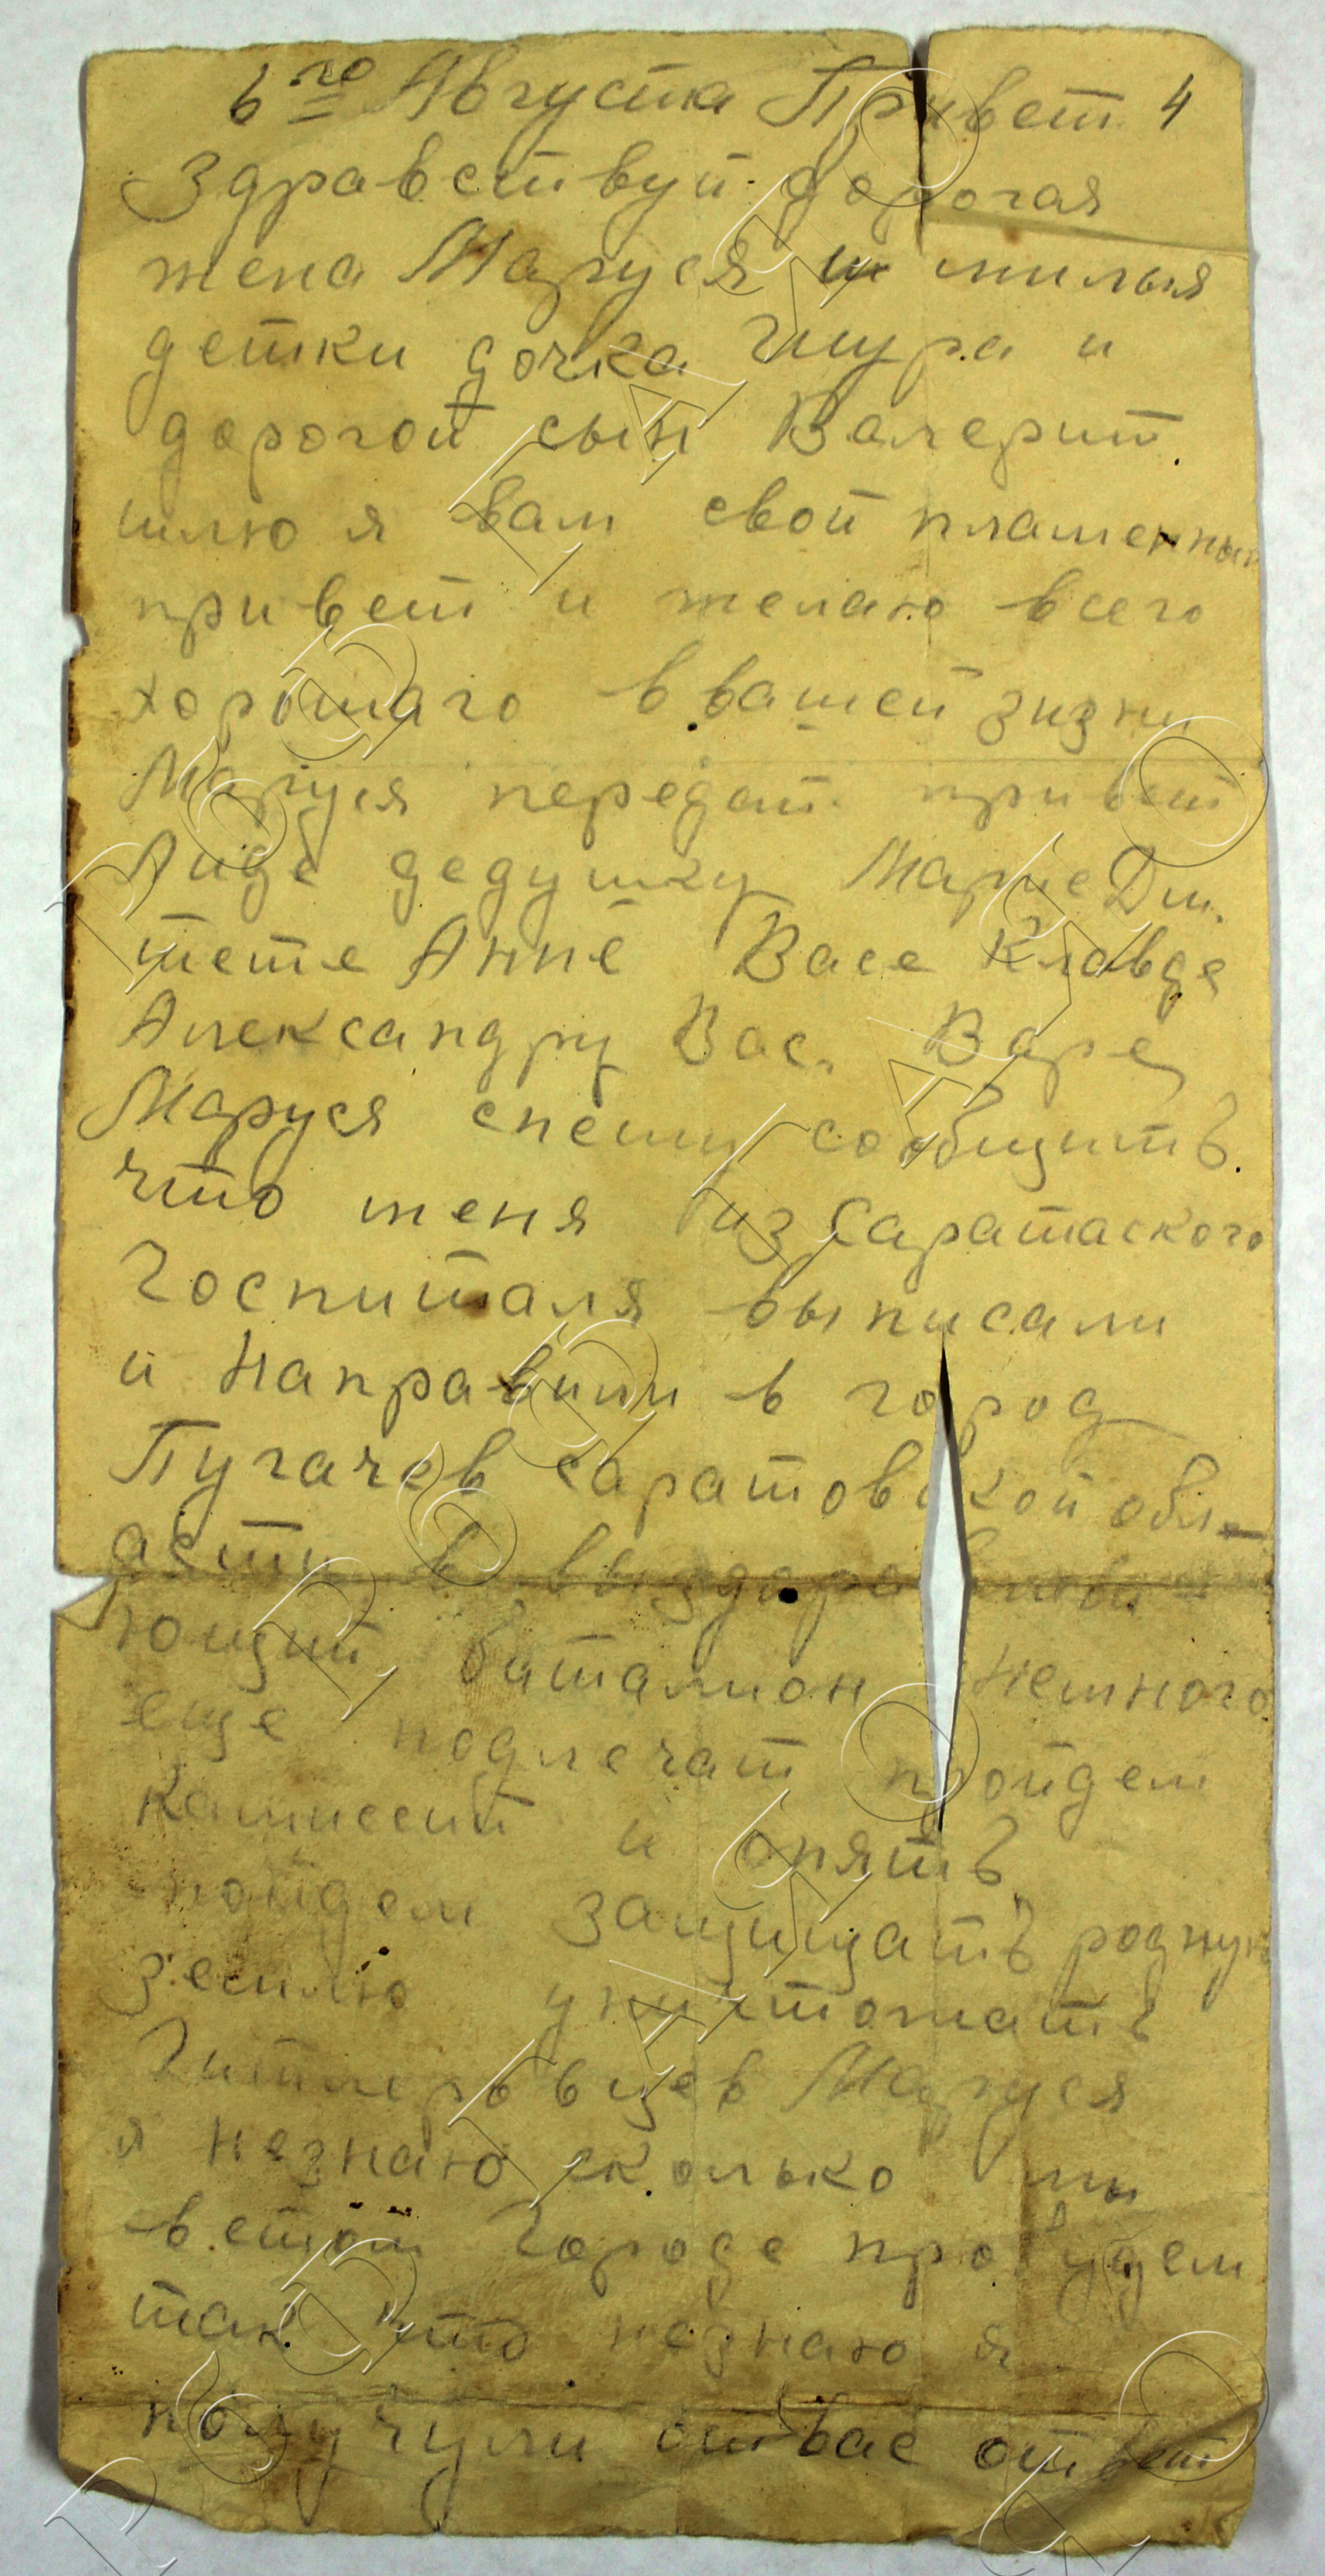 6го Августа Привет 4
Здравствуй дорогая
жена Маруся и милыя
детки дочка Шура и
дорогой сын Валерит
шлю я вам свой пламенный
привет и желаю всего
хорошаго в вашей зизни
Маруся передат привет
Лиде дедушку Марие Дм.
тете Анне Васе Клавде
Александру Вас. Варе
Маруся спешу сообщить
что меня из Саратаского
Госпиталя выписали
и направили в город
Пугачев саратовской обл-
асти в выздара
ющит баталион немного
еще подлечат пройдем
камиссий и опять
пойдем защищать родную
землю уничтожать
Гитлеровцев Маруся
я незнаю сколько мы
в етом Городе пробудем
так что незнаю я
получули отвас ответ